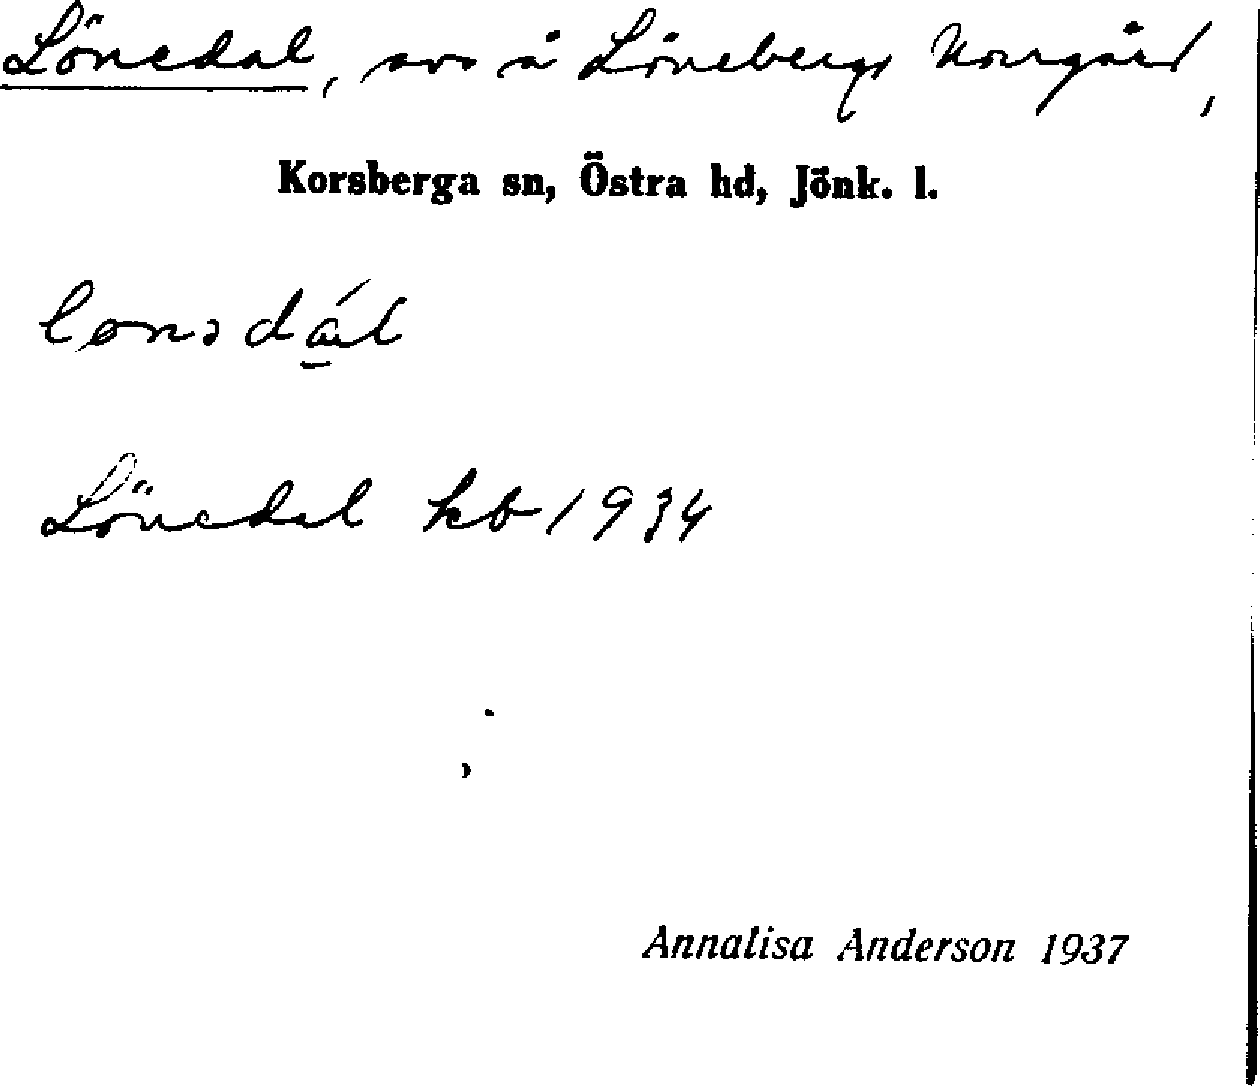 Lönedal, avs å Löneberga Norrgård,
Korsberga sn, Östra hd, Jönk. l.
lønədál
Lönedal kb 1934
Annalisa Anderson 1937